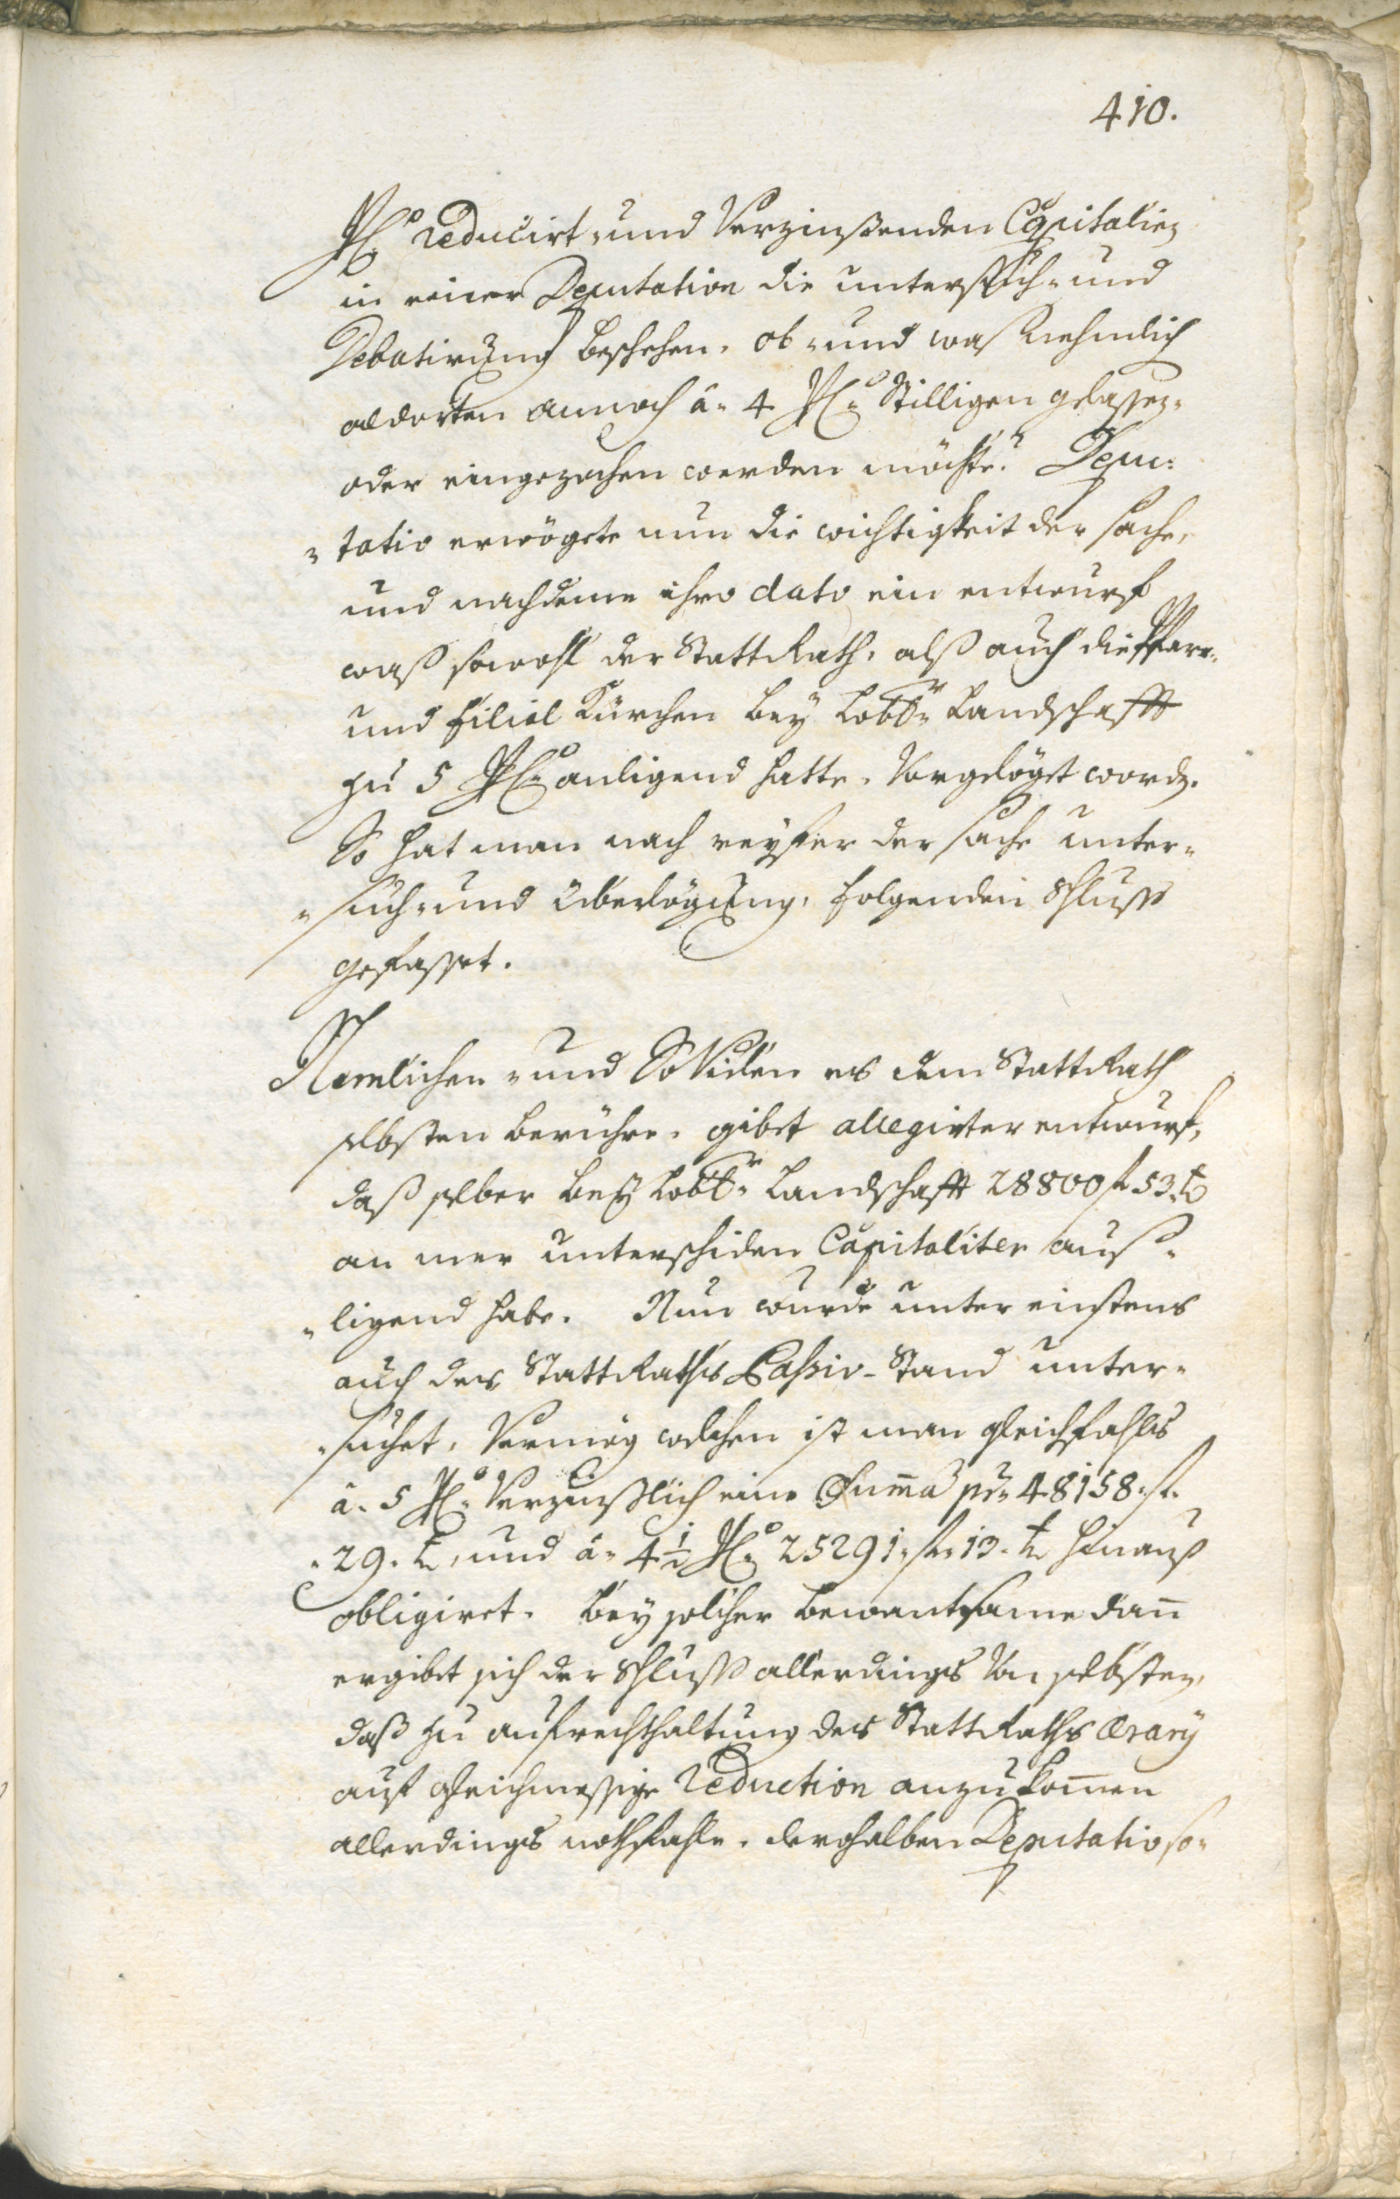 410.
PC:to reducirt- und Verzinßenden Capitalien
in einer Deputation die untersuch- und
Debatirung beschehen, ob- und waß nehmlich
aldorten annoch â 4 PC:to Stilligen gelassen-
oder eingezochen werden möchte? Depu-
-tatio erwögete nun die wichtigkeit der sache,
und nachdeme ihro dato ein entwurf
waß sowohl der StattRath, alß auch die Pfarr-
und filial Kürchen bey Lobl:r Landschafft
zu 5 PC:to anligend hatte, Vorgelögt worden.
So hat man nach reyfer der sache unter-
-such- und überlögung, folgenden Schluss
gefasset.
Nemlichen- und So Vill es dem StattRath
selbsten berühre, gibet allegirter entwurf,
daß selber bey Lobl:r Landschafft 28800 f 53 kr
an mer unterschiden Capitalien auß-
-ligend habe. Nun wurde unter einstens
auch des StattRaths Passiv-Stand unter-
-suchet, Vermög welchen ist man gleichfahls
â 5 PC:to Verzinßlich eine Summa pr: 48158 f.
29. kr, und â 4½ PC:to 25291 f 13 kr hinauß
obligiret. Bey solcher bewantsame dann
ergibet sich der Schluss allerdings Von selbsten,
daß zu aufrechthaltung des StattRaths Ærarÿ
auf gleichmessige Reduction anzukomen
allerdings nothfahle, derohalben Deputatio so-